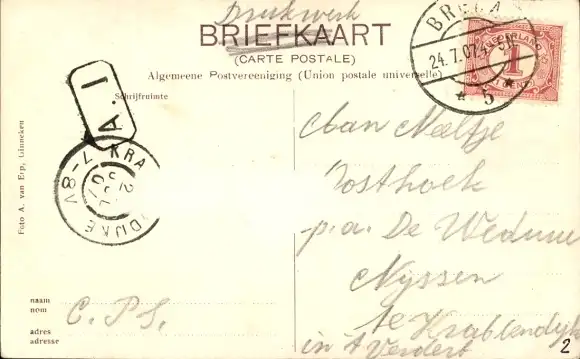 Drukwerk
BRIEFKAART
(CARTE POSTALE)
Algemeene Postvereeniging (Union postale universelle)
Schrijfruimte
BREDA
24.7.07.4-5N
* 5 *
NEDERLAND
1
CENT
A.1
KRA
DIJKE
7-8V
Foto A. van Erp, Ginneken
Aan Neeltje
Oosthoek
p.a. De Weduwe
Nijssen
te Krabbendijke
in 't Verdert
naam
nom
C. P. S.
adres
adresse
2